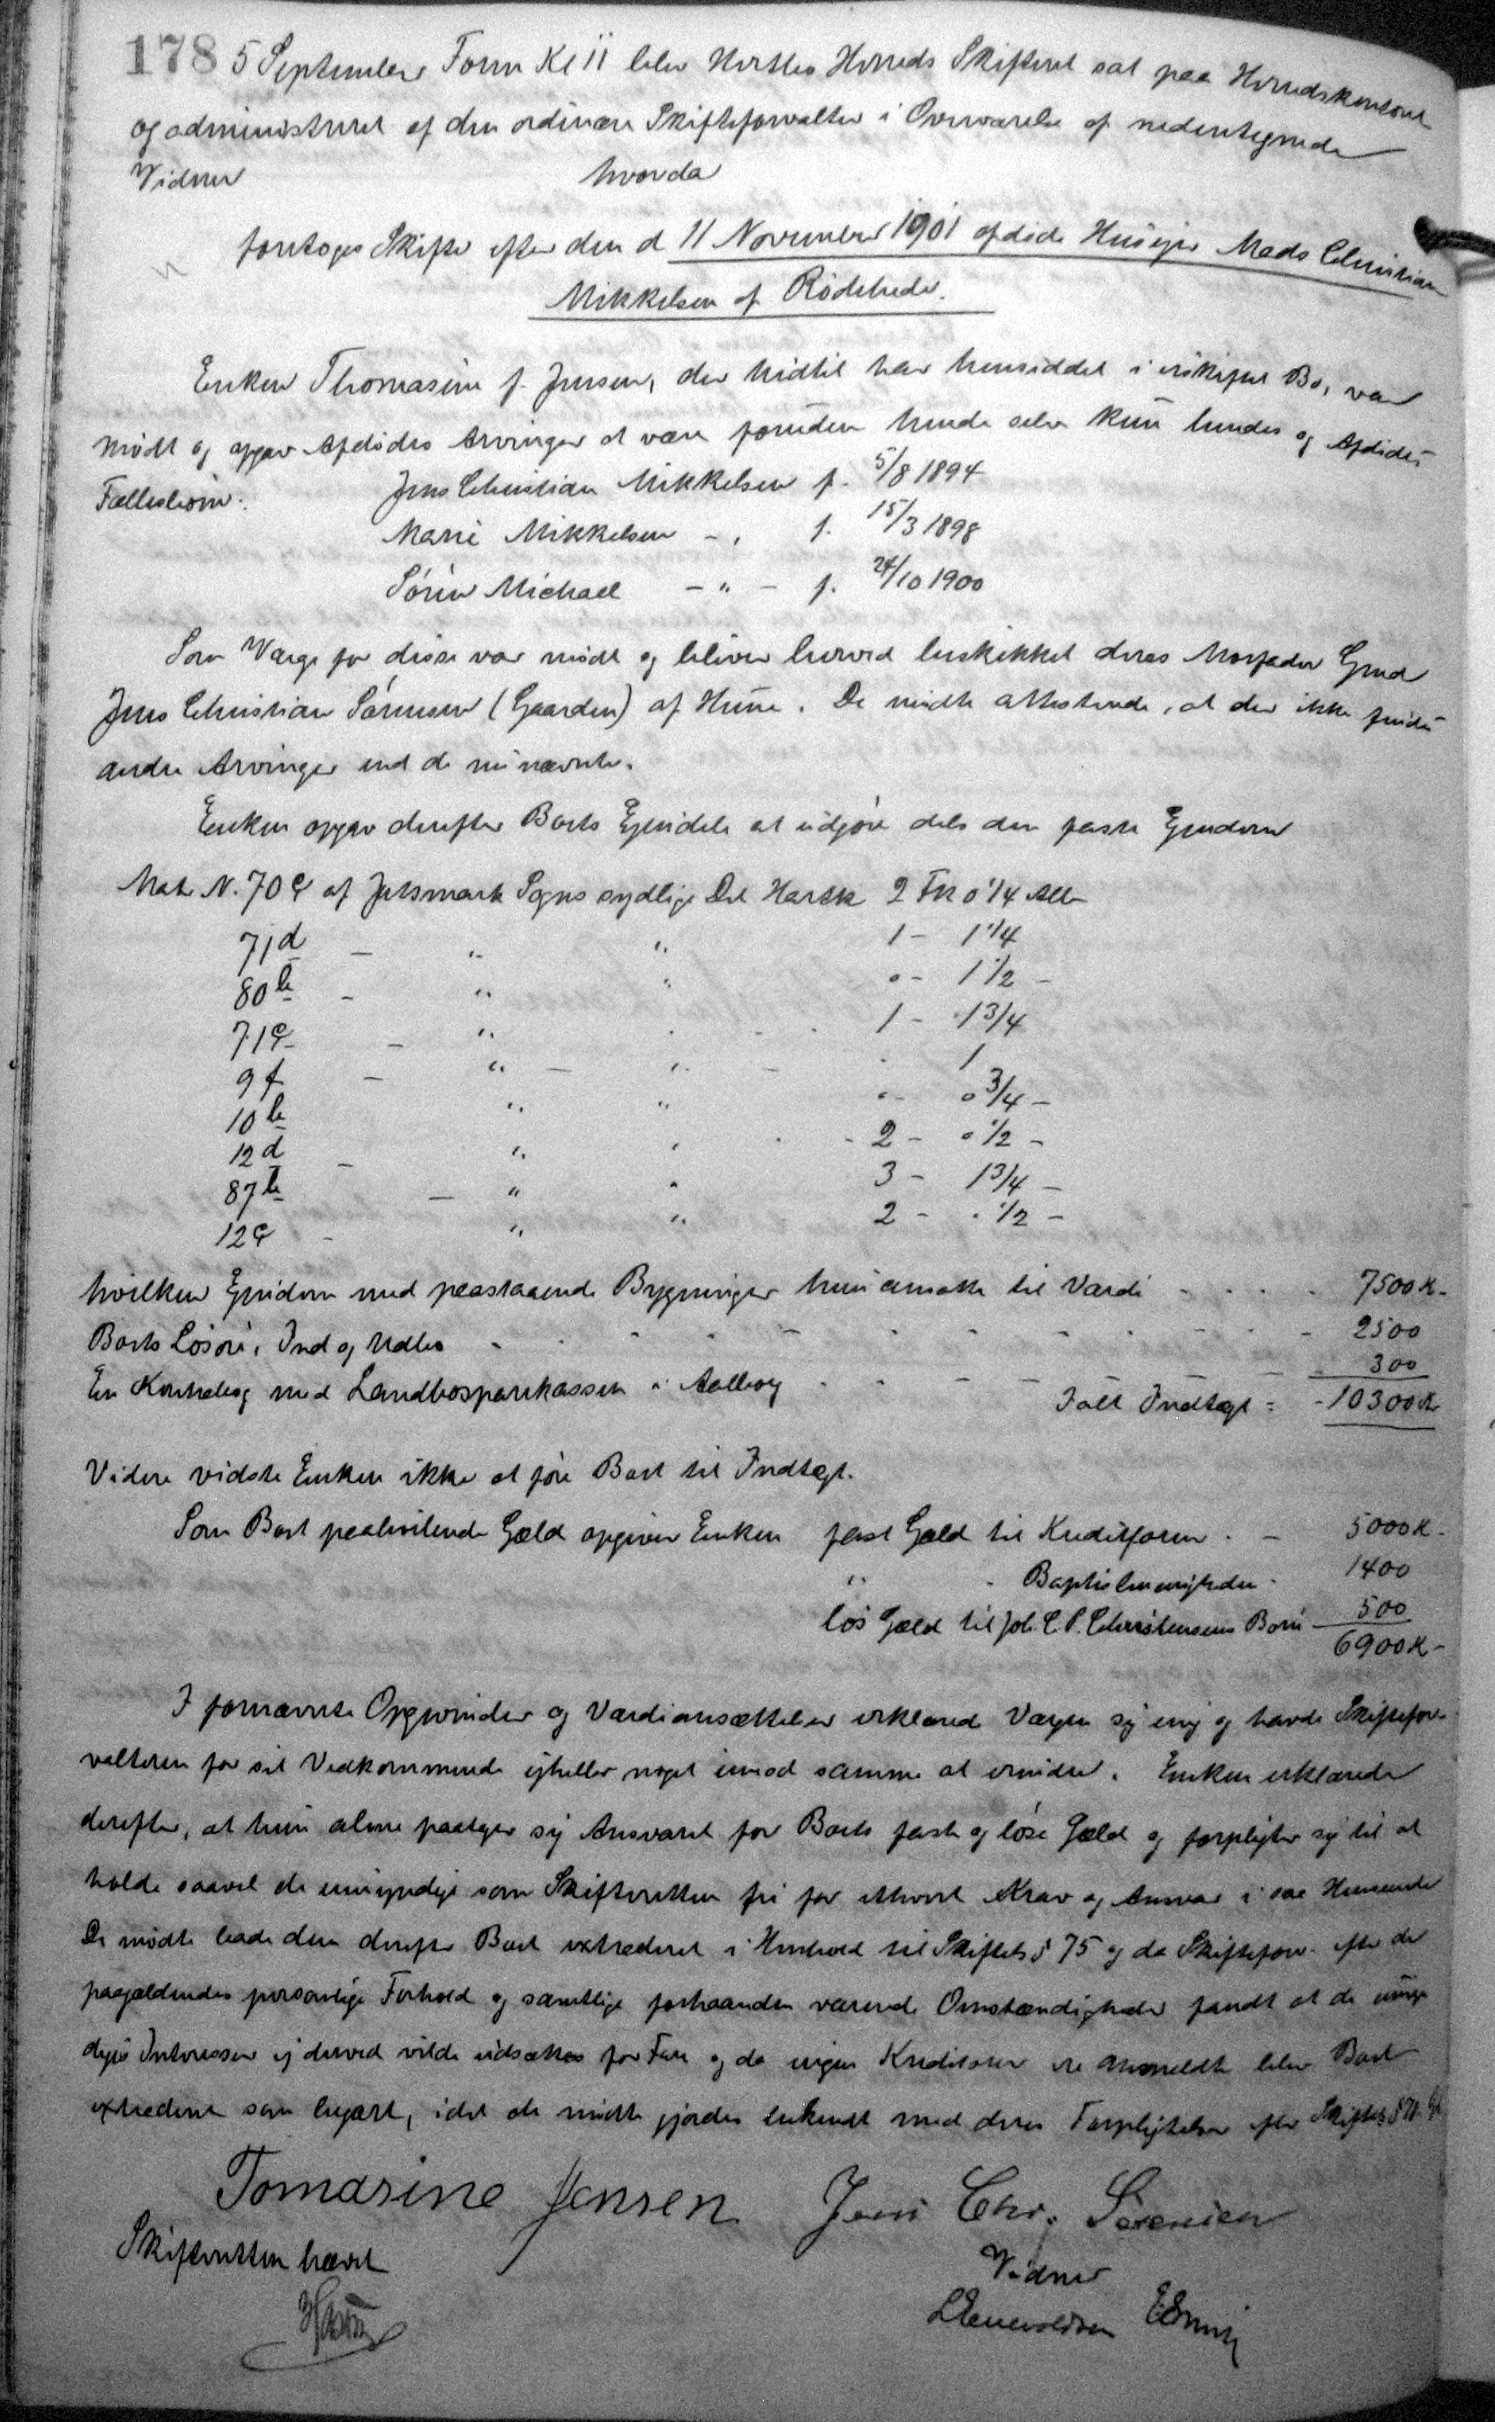 178 5 September Form Kl 11 blev Hvetbo Herreds Skifteret sat paa Herredskontoret
og administreret af den ordinære Skifteforvalter i Overværelse af nedentegnede
Vidner hvorda
foretoges Skifte efter den d 11 November 1901 afdøde Husejer Mads Christian
Mikkelsen af Rödehede.
Enken Thomasine f. Jensen, der hidtil har hensiddet i uskiftet Bo, var
mødt og opgav Afdødes Arvinger at være foruden hende selv kun hendes og Afdødes
Fællesbörn:
Jens Christian Mikkelsen f. 5/8 1894
Marie Mikkelsen - " f. 15/3 1898
Sören Michael - " - f. 24/10 1900
Som Værge for disse var mødt og bliver herved beskikket deres Morfader Grmd
Jens Christian Sörensen (Gaarden) af Hune. De mødte attesterede, at der ikke findes
andre Arvinger end de nu nævnte.
Enken opgav derefter Boets Ejendele at udgjöre dels den faste Ejendom
Mat N. 70 c af Jetsmark Sogns sydlige Del Hartk 2 Fk 0 1/4 Alb
71 d - " " 1 - 1 1/4
80 b - " " 0 - 1 1/2 -
71 c - " 1 - 1 3/4
9 f - " - " - 1
10 b " " 0 - 0 3/4 -
12 d - " " 2 - 0 1/2 -
87 b - " " 3 - 1 3/4 -
12 c - " " 2 - 0 1/2 -
hvilken Ejendom med paastaaende Bygninger hun ansatte til Værdi 7500 K -
Boets Lösöre, Ind og Udbo 2500
En Kontrabog med Landbosparekassen i Aalborg 300
Ialt Indtægt = 10300 K
Videre vidste Enken ikke at före Boet til Indtægt.
Som Boet paahvilende Gæld opgiver Enken fast Gæld til Kreditforen. - 5000 K -
" " Baptistmenigheden - 1400
lös Gæld til Joh. C. P. Christensens Börn 500
6900 K -
I fornævnte Opgivender og Værdiansættelser erklærede Værgen sig enig og havde Skiftefor-
valteren for sit Vedkommende ejheller noget imod samme at erindre. Enken erklærede
derefter, at hun alene paatager sig Ansvaret for Boets faste og löse Gæld og forpligter sig til at
holde saavel de umyndige som Skifteretten fri for ethvert Krav og Ansvar i saa Henseende
De mødte bade dem derefter Boet extraderet i Henhold til Skiftels § 75 og da Skifteforv. efter de
paagældendes personlige Forhold og samtlige forhaanden værende Omstændigheder fandt at de umyn
diges Interesser ej derved vilde udsættes for Fare og da ingen Kreditorer ere anmeldte blev Boet
extraderet som begært, idet de mødte gjordes bekendt med deres Forpligtelser efter Skiftels §
Tomasine Jensen Jens Chr. Sörensen
Skifteretten hævet Vidner